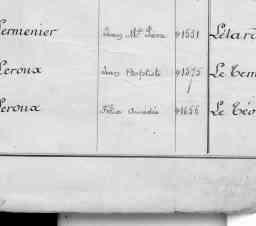 Lermenier Jean Mie 91551 Létard
Leroux Jean Baptiste 91575 Le Tem
Leroux Félix Amédée 91656 Le Téo